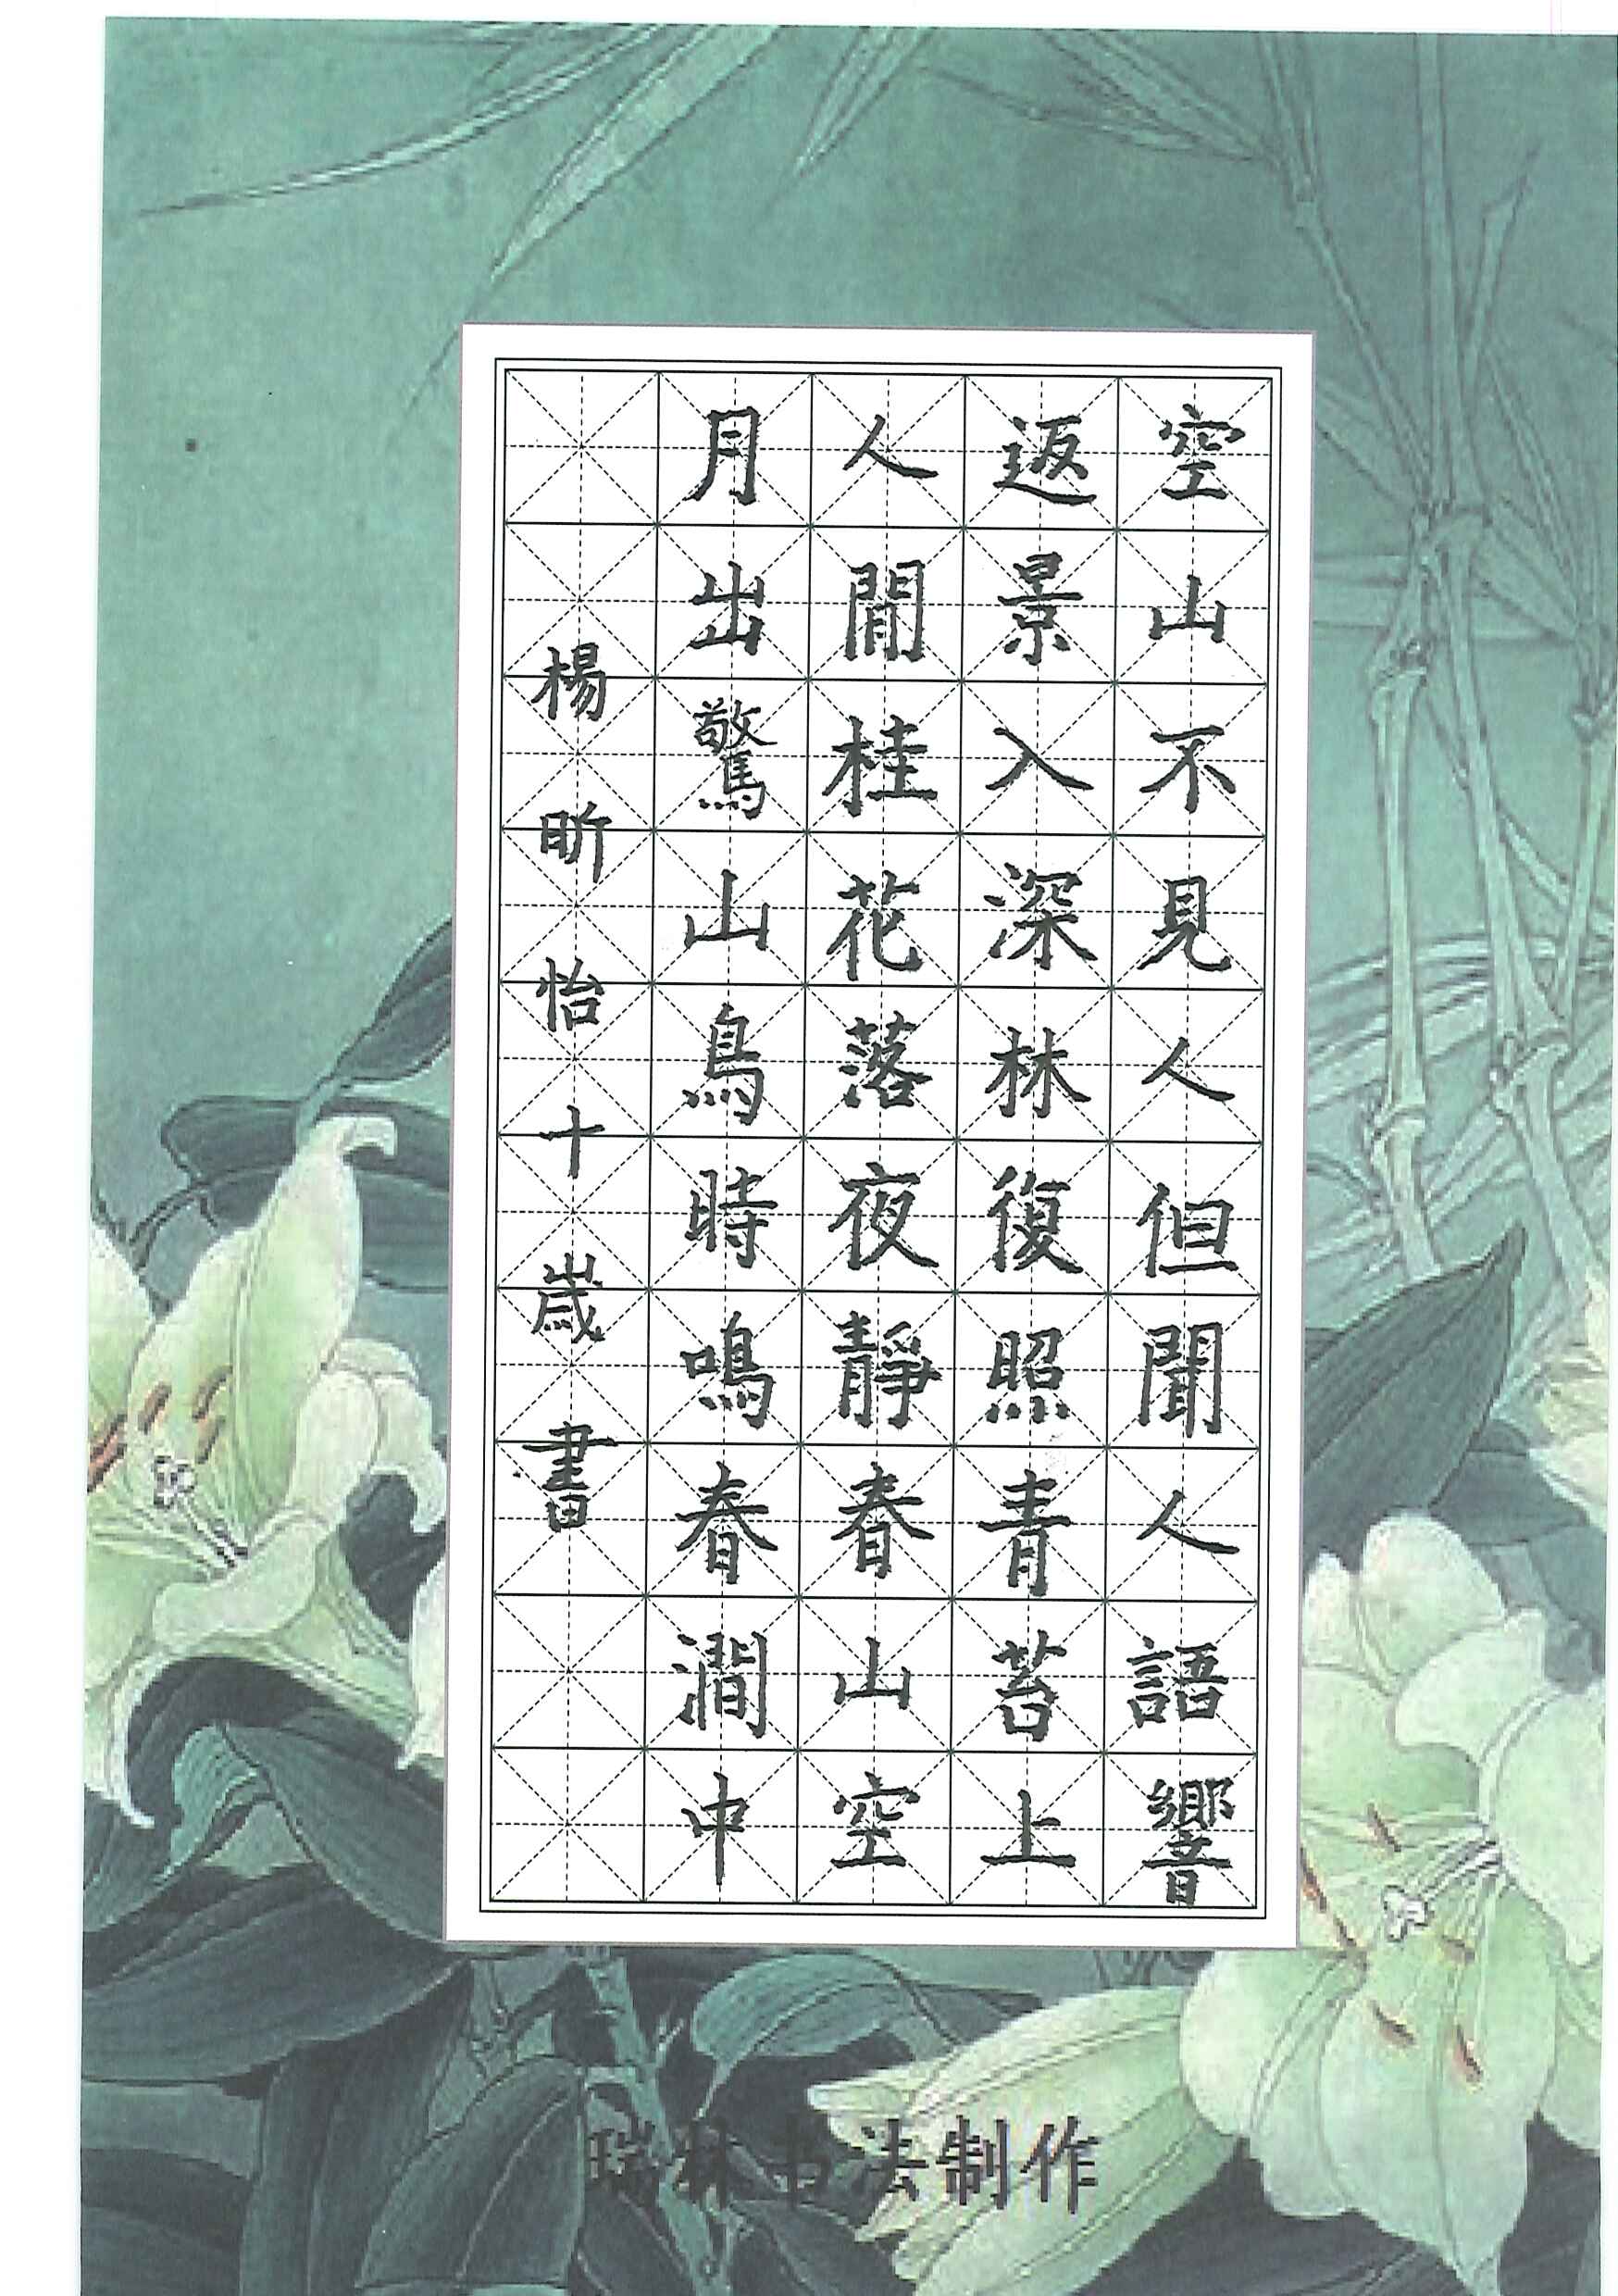 空山不見人但聞人語響
返景入深林復照青苔上
人閒桂花落夜靜春山空
月出驚山鳥時鳴春澗中
楊昕怡十歲書
瑞林书法制作